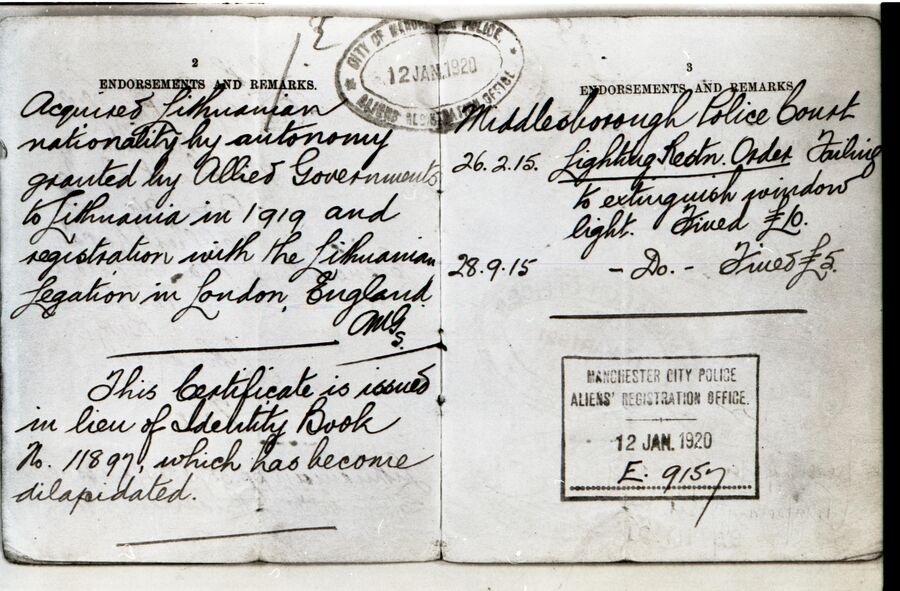 CITY OF MANCHESTER POLICE.
12 JAN. 1920
ALIENS REGISTRATION OFFICE
2
ENDORSEMENTS AND REMARKS.
Acquired Lithuanian
nationality by autonomy
granted by Allied Governments
to Lithuania in 1919 and
registration with the Lithuanian
Legation in London, England.
This Certificate is issued
in lieu of Identity Book
No. 11897, which has become
dilapidated.
3
ENDORSEMENTS AND REMARKS
Middlesborough Police Court
26.2.15. Lighting Restn. Order. Failing
to extinguish window
light. Fined £10.
28.9.15 - Do. - Fined £5.
MANCHESTER CITY POLICE
ALIENS' REGISTRATION OFFICE.
12 JAN. 1920
E. 9157